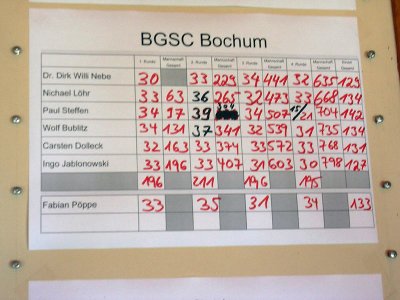 BGSC Bochum
1. Runde Mannschaft Gesamt 2. Runde Mannschaft Gesamt 3. Runde Mannschaft Gesamt 4. Runde Mannschaft Gesamt Einzel Gesamt
Dr. Dirk Willi Nebe 30 33 229 34 441 32 635 129
Nichael Löhr 33 63 36 265 32 473 33 668 134
Paul Steffen 34 97 39 34 507 704 142
Wolf Bublitz 34 131 37 341 32 539 31 735 134
Carsten Dolleck 32 163 33 374 33 572 33 768 131
Ingo Jablonowski 33 196 33 407 31 603 30 798 127
196 211 196 195
Fabian Pöppe 33 35 31 34 133